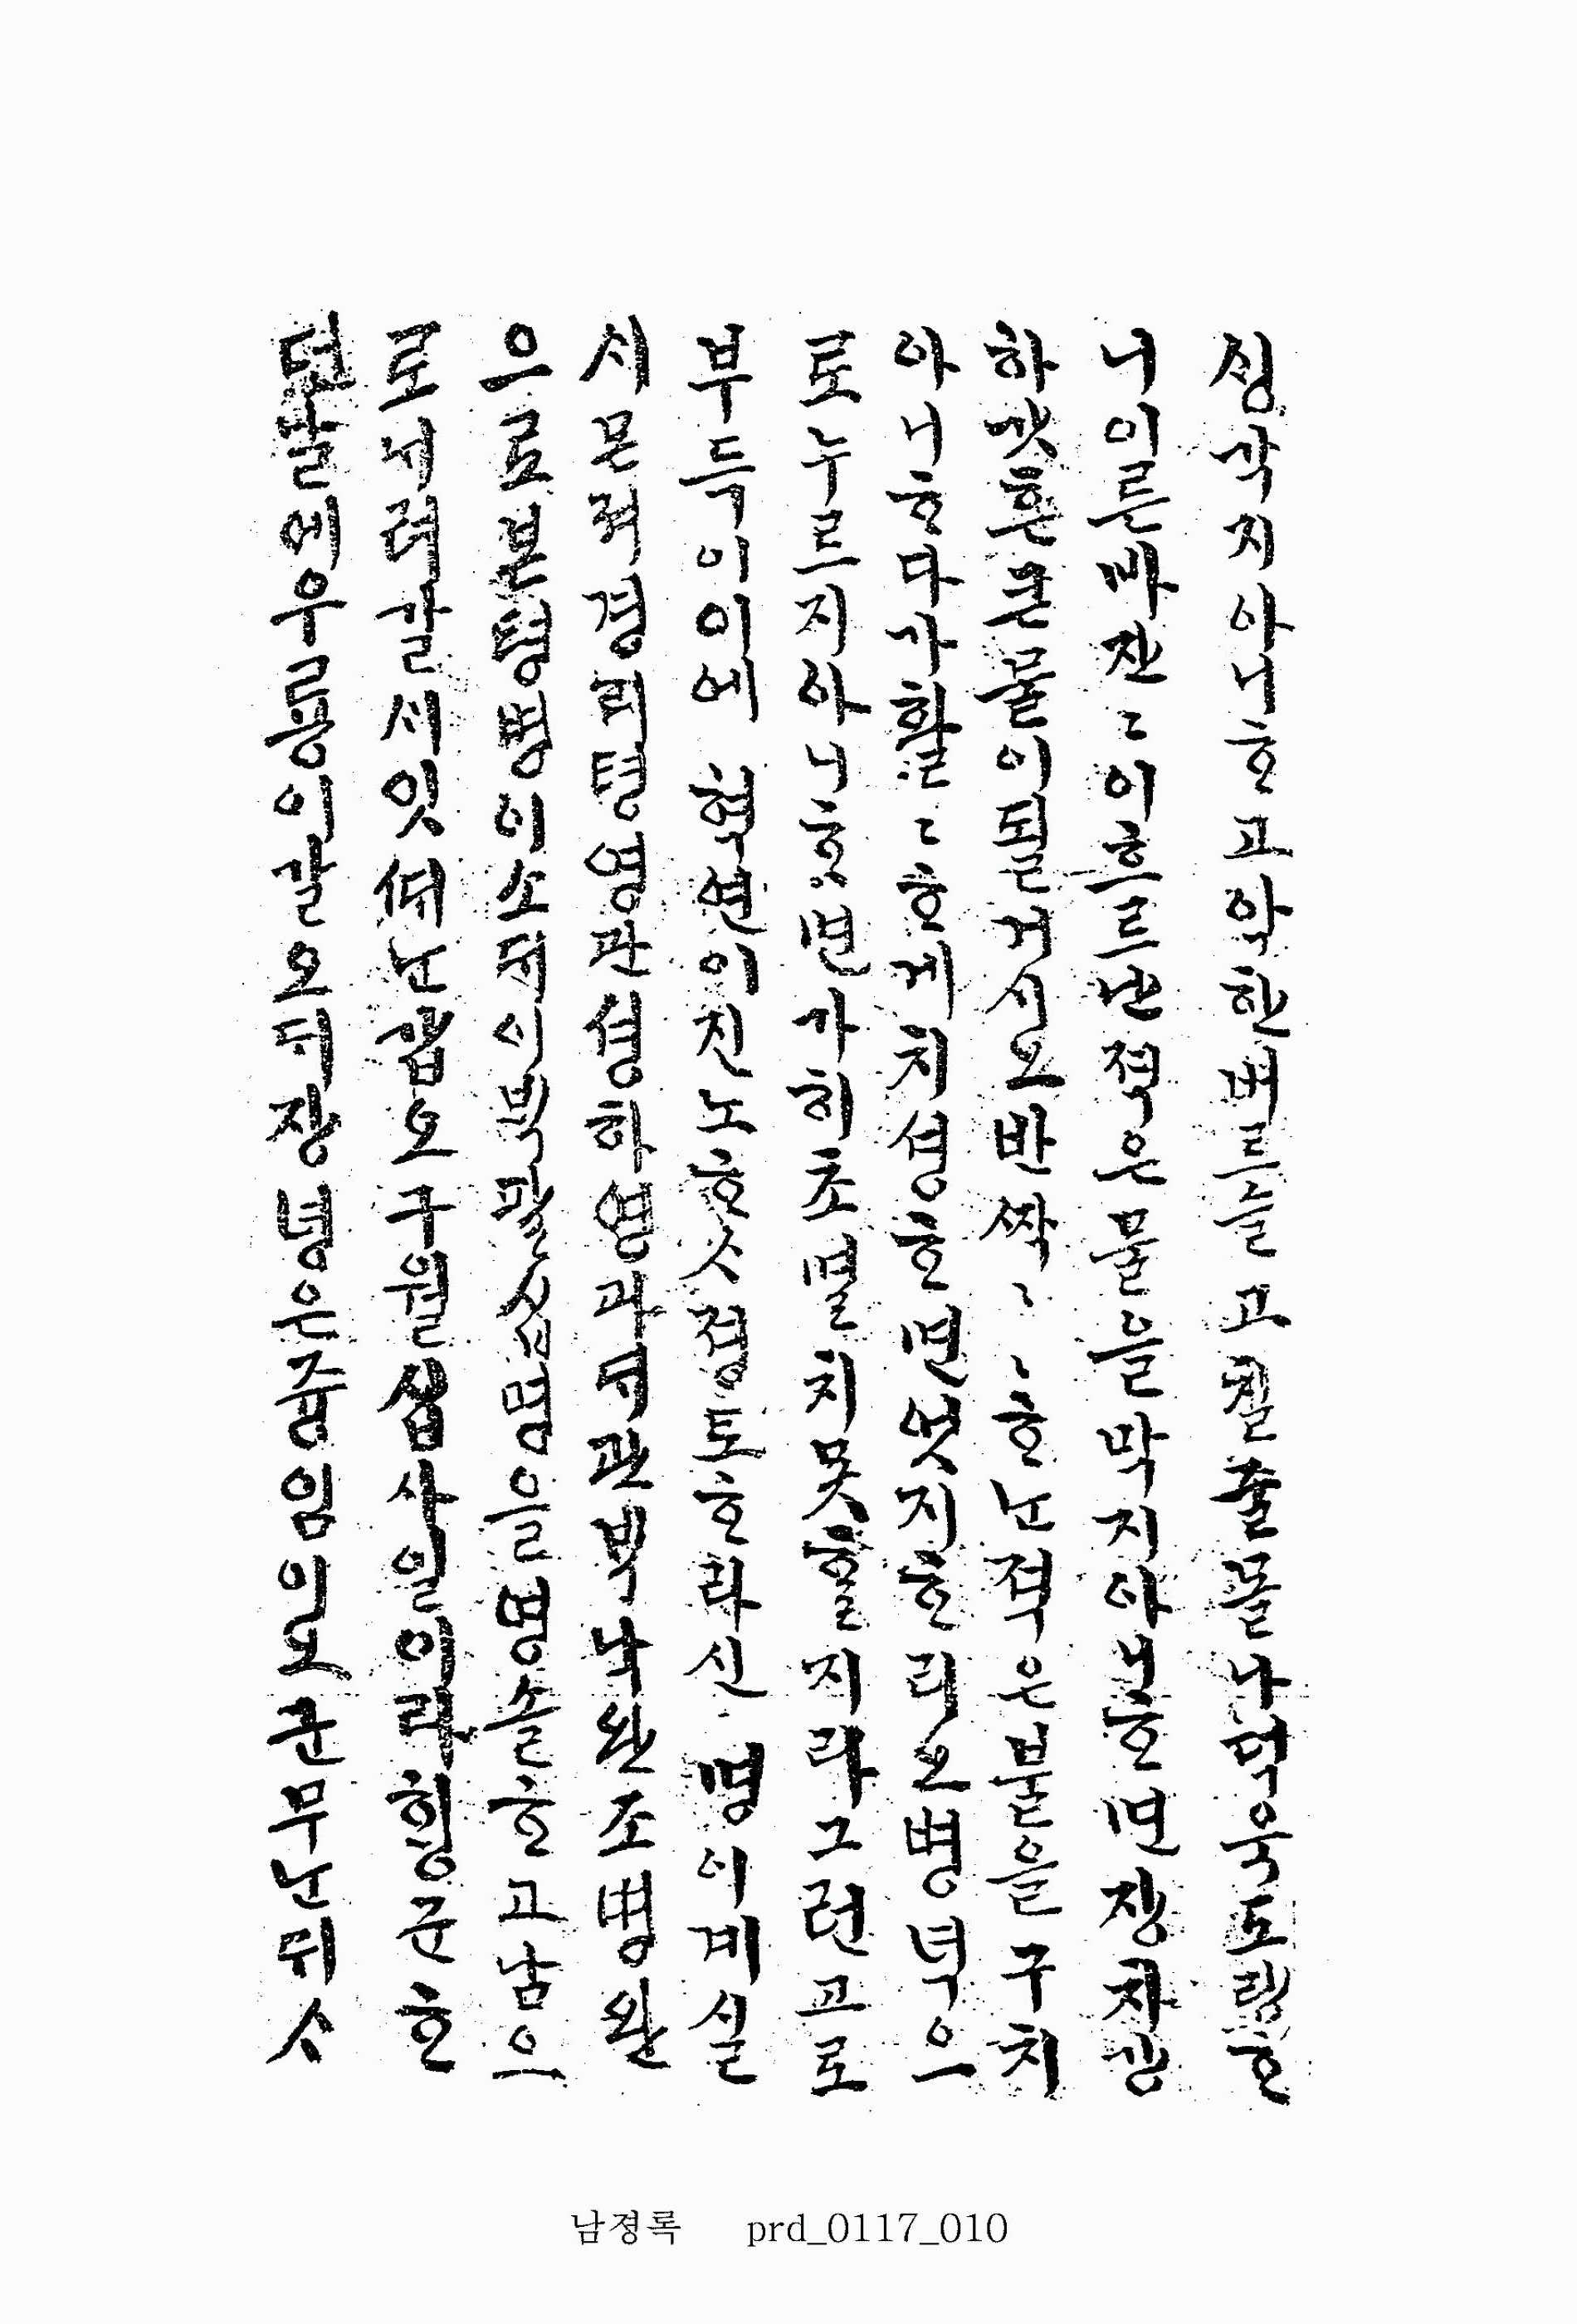 싱각지아니ᄒᆞ고악한버르슬고칠쥴몰나더욱도량ᄒᆞ
니이른바잔〻이흐르ᄂᆞᆫ젹은물을막지아니ᄒᆞ면쟝ᄎᆞ강
하갓흔큰물이될거시오반짝〻〻ᄒᆞᄂᆞᆫ젹은불을구치
아니ᄒᆞ다가활〻ᄒᆞ게치셩ᄒᆞ면엇지ᄒᆞ리오병녁으
로누르지아니ᄒᆞ면가히초멸치못ᄒᆞᆯ지라그런고로
부득이이에 혁연이진노ᄒᆞᄉᆞ졍토ᄒᆞ라신 명이계실
ᄉᆡ몬져경리텽영관셩하영과ᄃᆡ관박낙완조병완
으로본텽병이소ᄃᆡ이ᄇᆡᆨ팔십명을병솔ᄒᆞ고남으
로ᄂᆡ려갈ᄉᆡ잇ᄯᆡᄂᆞᆫ갑오구월삼사일이라ᄒᆡᆼ군ᄒᆞ
던날에우룡이갈오ᄃᆡ쟝녕은즁임이오군무ᄂᆞᆫᄃᆡᄉᆞ
남졍록 prd_0117_010